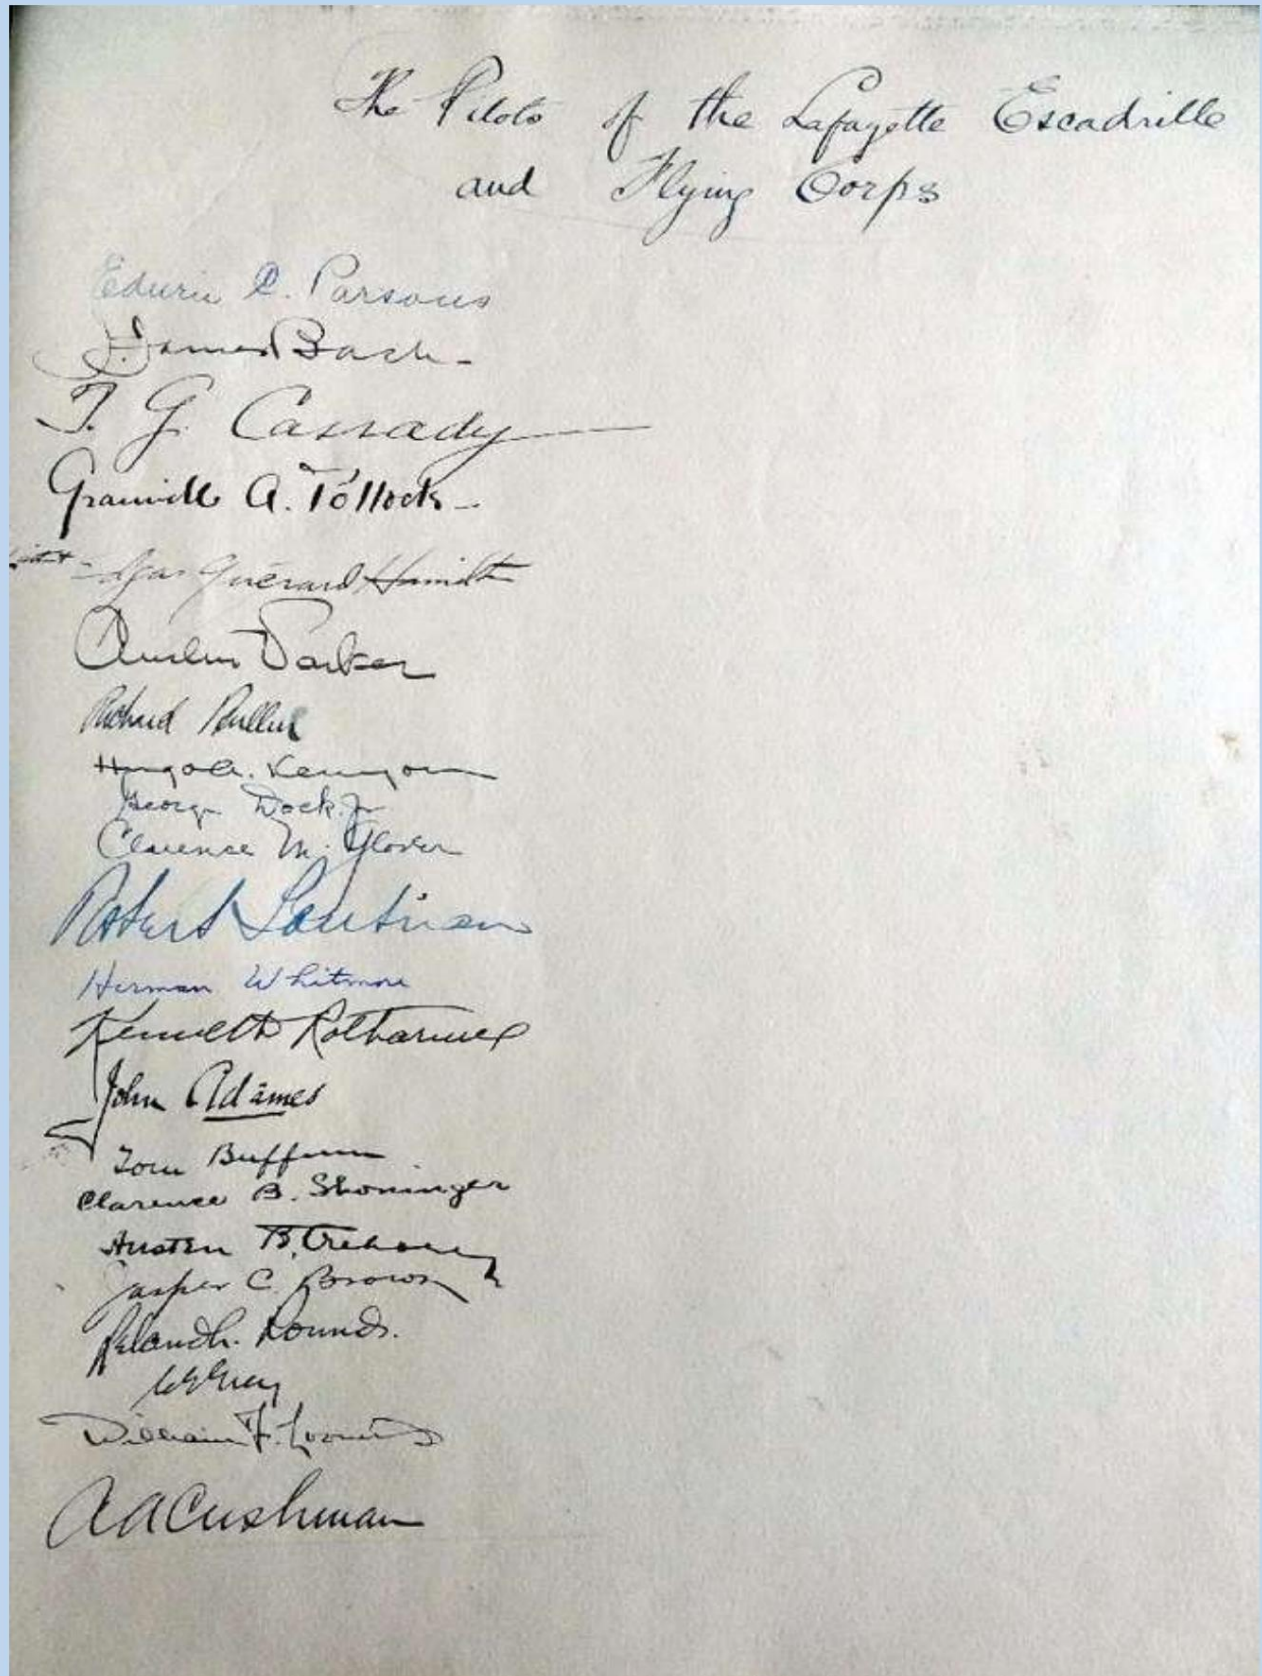 The Pilots of the Lafayette Escadrille
and Flying Corps
Edwin C. Parsons
James Bach
T. G. Cassady
Granville A. Pollock
Edgar Guerard Hamilton
Austin Parker
Richard
Hugo A. Kenyon
George Dock Jr
Clarence M. Glover
Robert Soubiran
Herman Whitmore
Kenneth Rotharmel
John Adames
Tom Buffum
Clarence B. Shoninger
Austen B. Crehore
Jasper C. Brown
Leland L. Rounds.
William F. Loomis
A A Cushman